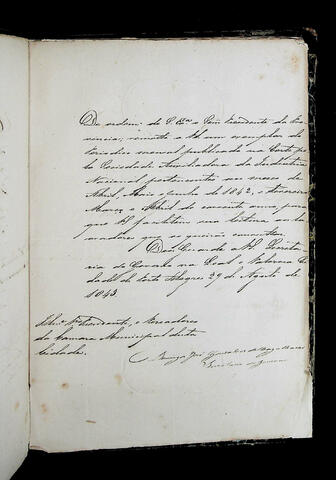 De ordem de S. Exa. o Snr. Presidente da Pro-
vincia, remetto a VS. um exemplar do
Periodico mensal publicado na Corte pe-
la Sociedade Auxiliadora da Industria
Nacional pertencentes aos mezes de
Abril, Maio e Junho de 1842, e Fevereiro
Março e Abril do corrente anno, para
que VS. facilitem sua leitura aos la-
vradores que a queirão consultar.
Deos Guarde a VS. Secreta-
ria do Governo na Leal e Valorosa Ci-
dade de Porto Alegre 29 de Agosto de
1843.
Illmos. Snrs. Presidente, e Vereadores
da Camara Municipal desta
Cidade.
José Gonçalves de